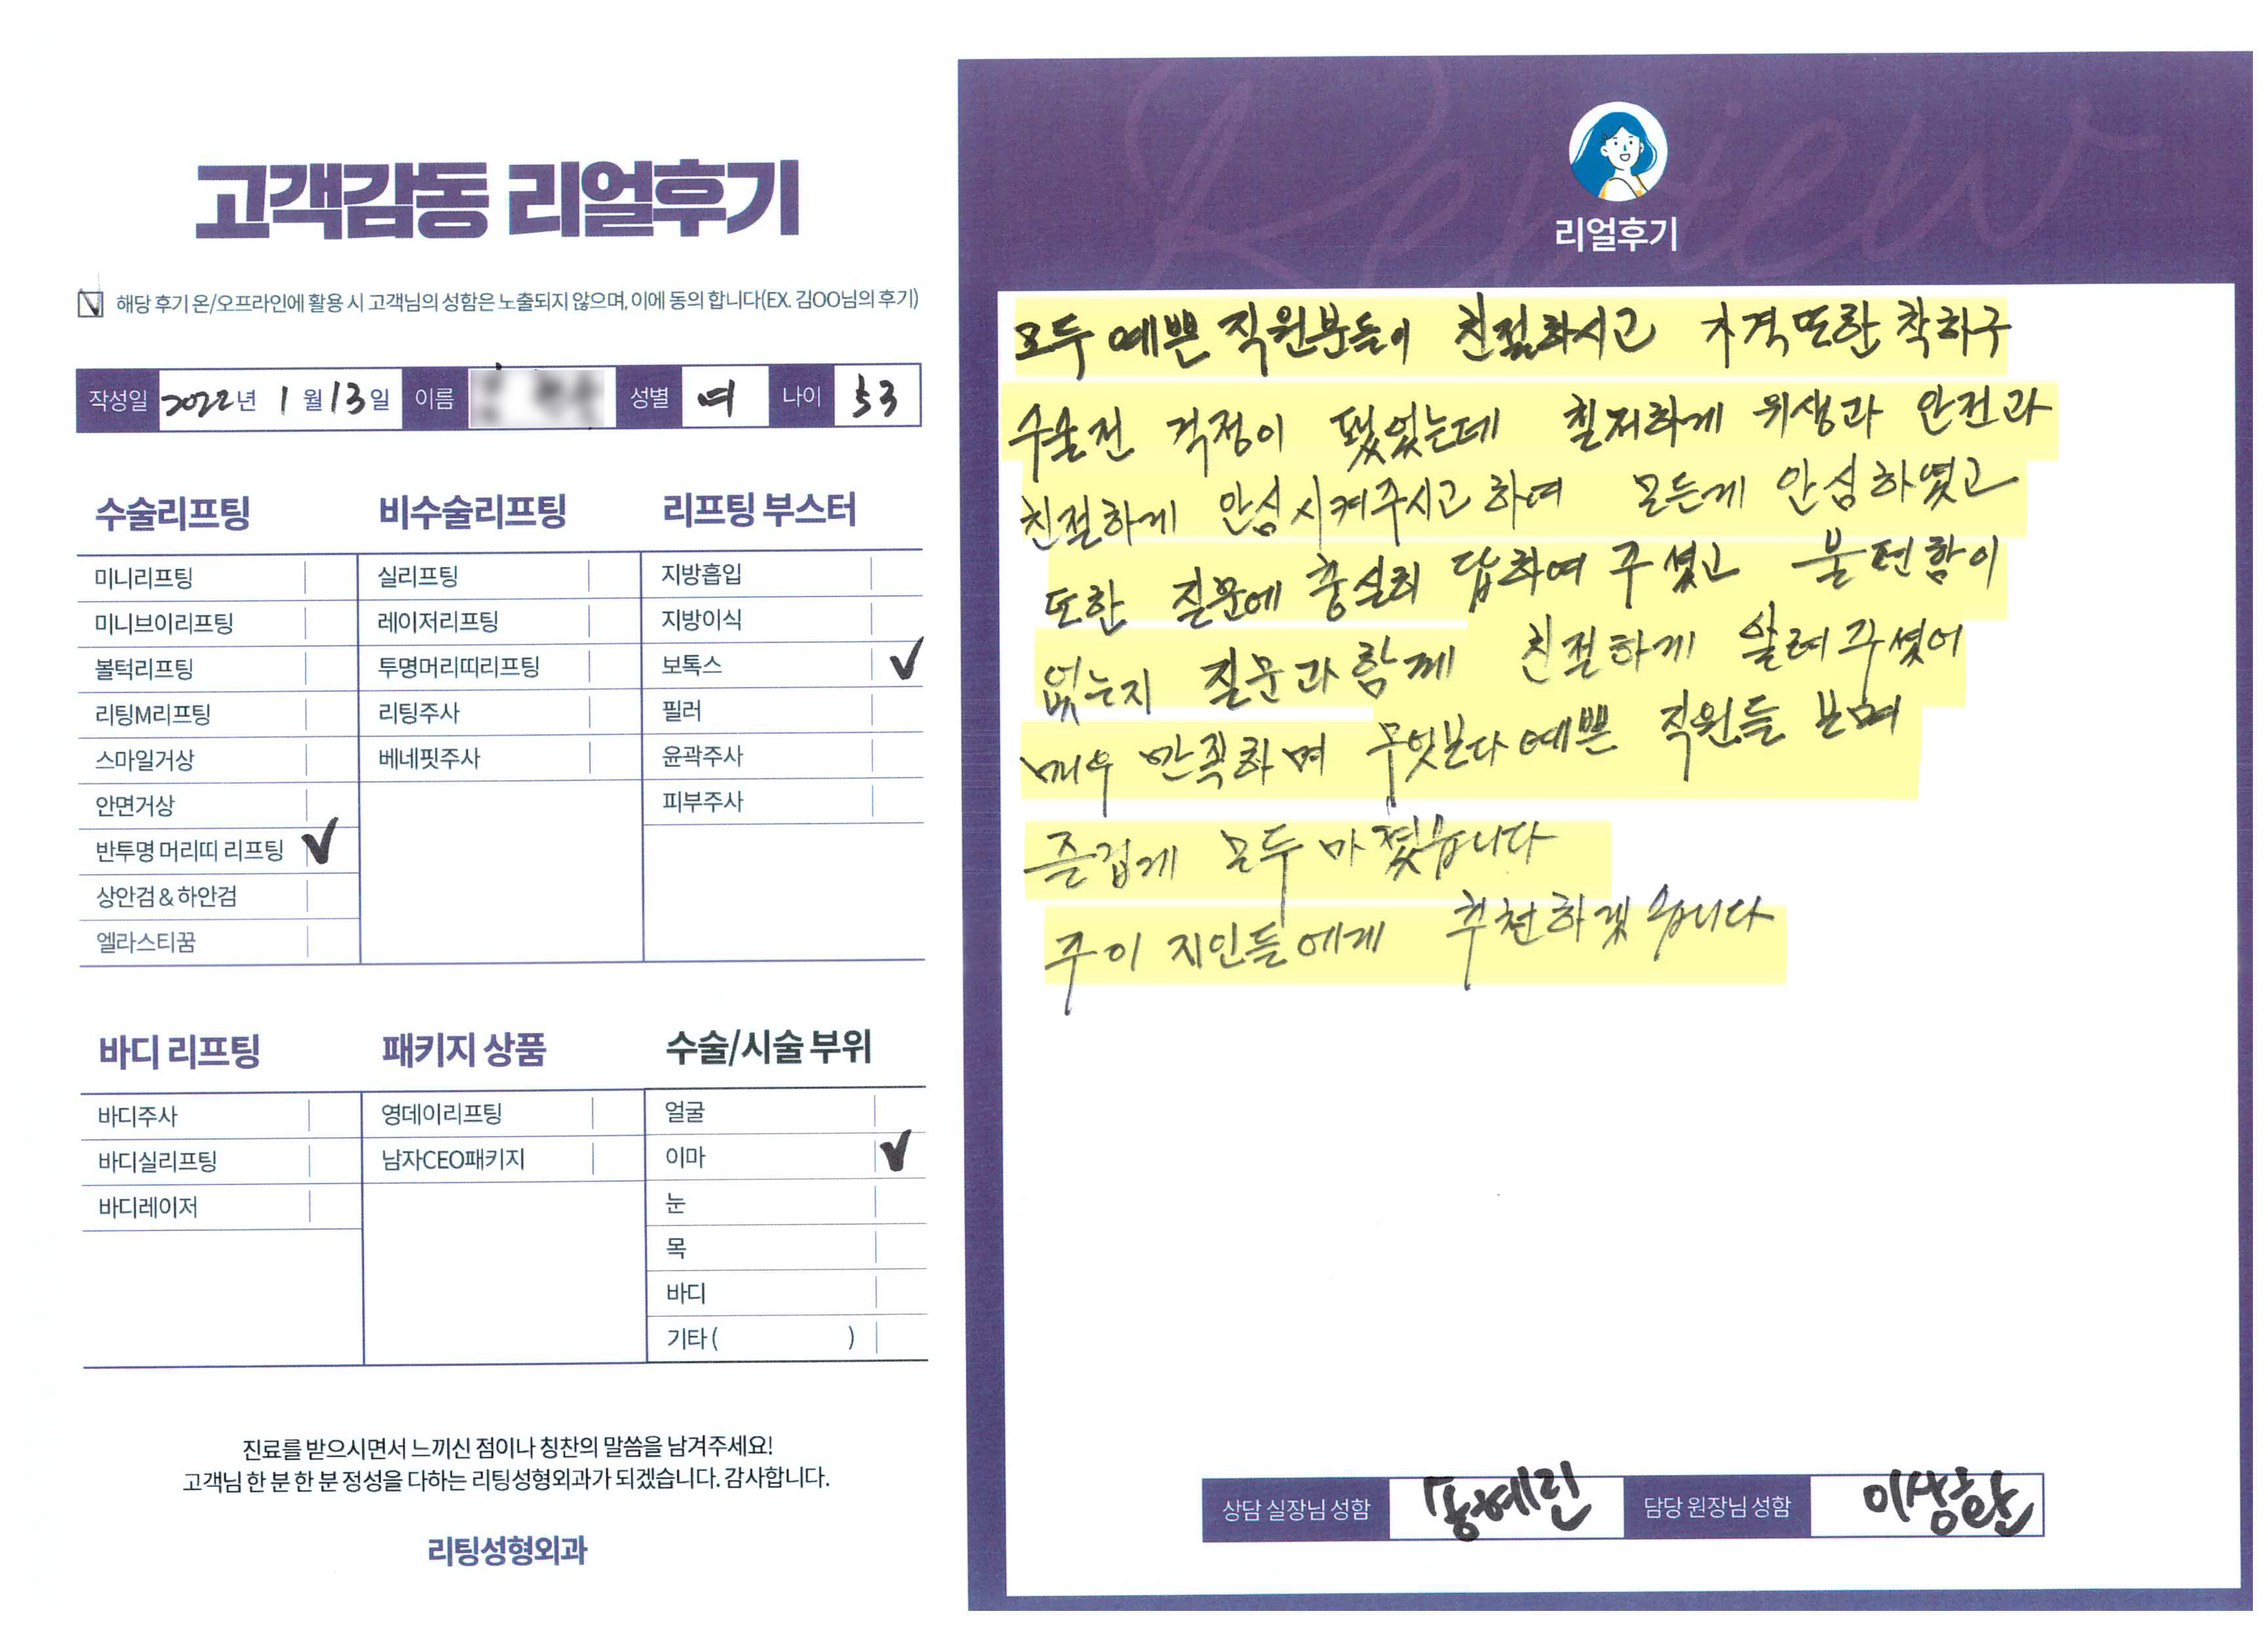 고객감동 리얼후기
해당 후기 온/오프라인에 활용 시 고객님의 성함은 노출되지 않으며, 이에 동의 합니다(EX. 김OO님의 후기)
작성일 2022년 1월 13일 이름 성별 여 나이 53
수술리프팅
미니리프팅
미니브이리프팅
볼턱리프팅
리팅M리프팅
스마일거상
안면거상
반투명 머리띠 리프팅
상안검 & 하안검
엘라스티꿈
비수술리프팅
실리프팅
레이저리프팅
투명머리띠리프팅
리팅주사
베네핏주사
리프팅 부스터
지방흡입
지방이식
보톡스
필러
윤곽주사
피부주사
바디 리프팅
바디주사
바디실리프팅
바디레이저
패키지 상품
영데이리프팅
남자CEO패키지
수술/시술 부위
얼굴
이마
눈
목
바디
기타 ( )
진료를 받으시면서 느끼신 점이나 칭찬의 말씀을 남겨주세요!
고객님 한 분 한 분 정성을 다하는 리팅성형외과가 되겠습니다. 감사합니다.
리팅성형외과
Review
리얼후기
모두 예쁜 직원분들이 친절하시고 가격또한 착하구
수술전 걱정이 됐었는데 철저하게 위생과 안전과
친절하게 안심시켜주시고 하여 모든게 안심하였고
또한 질문에 충실히 답하여 주셨고 불편함이
없는지 질문과 함께 친절하게 알려주셨어
매우 만족하며 무엇보다 예쁜 직원들 보며
즐겁게 모두 마쳤습니다
주이 지인들에게 추천하겠습니다
상담 실장님 성함 송예린 담당 원장님 성함